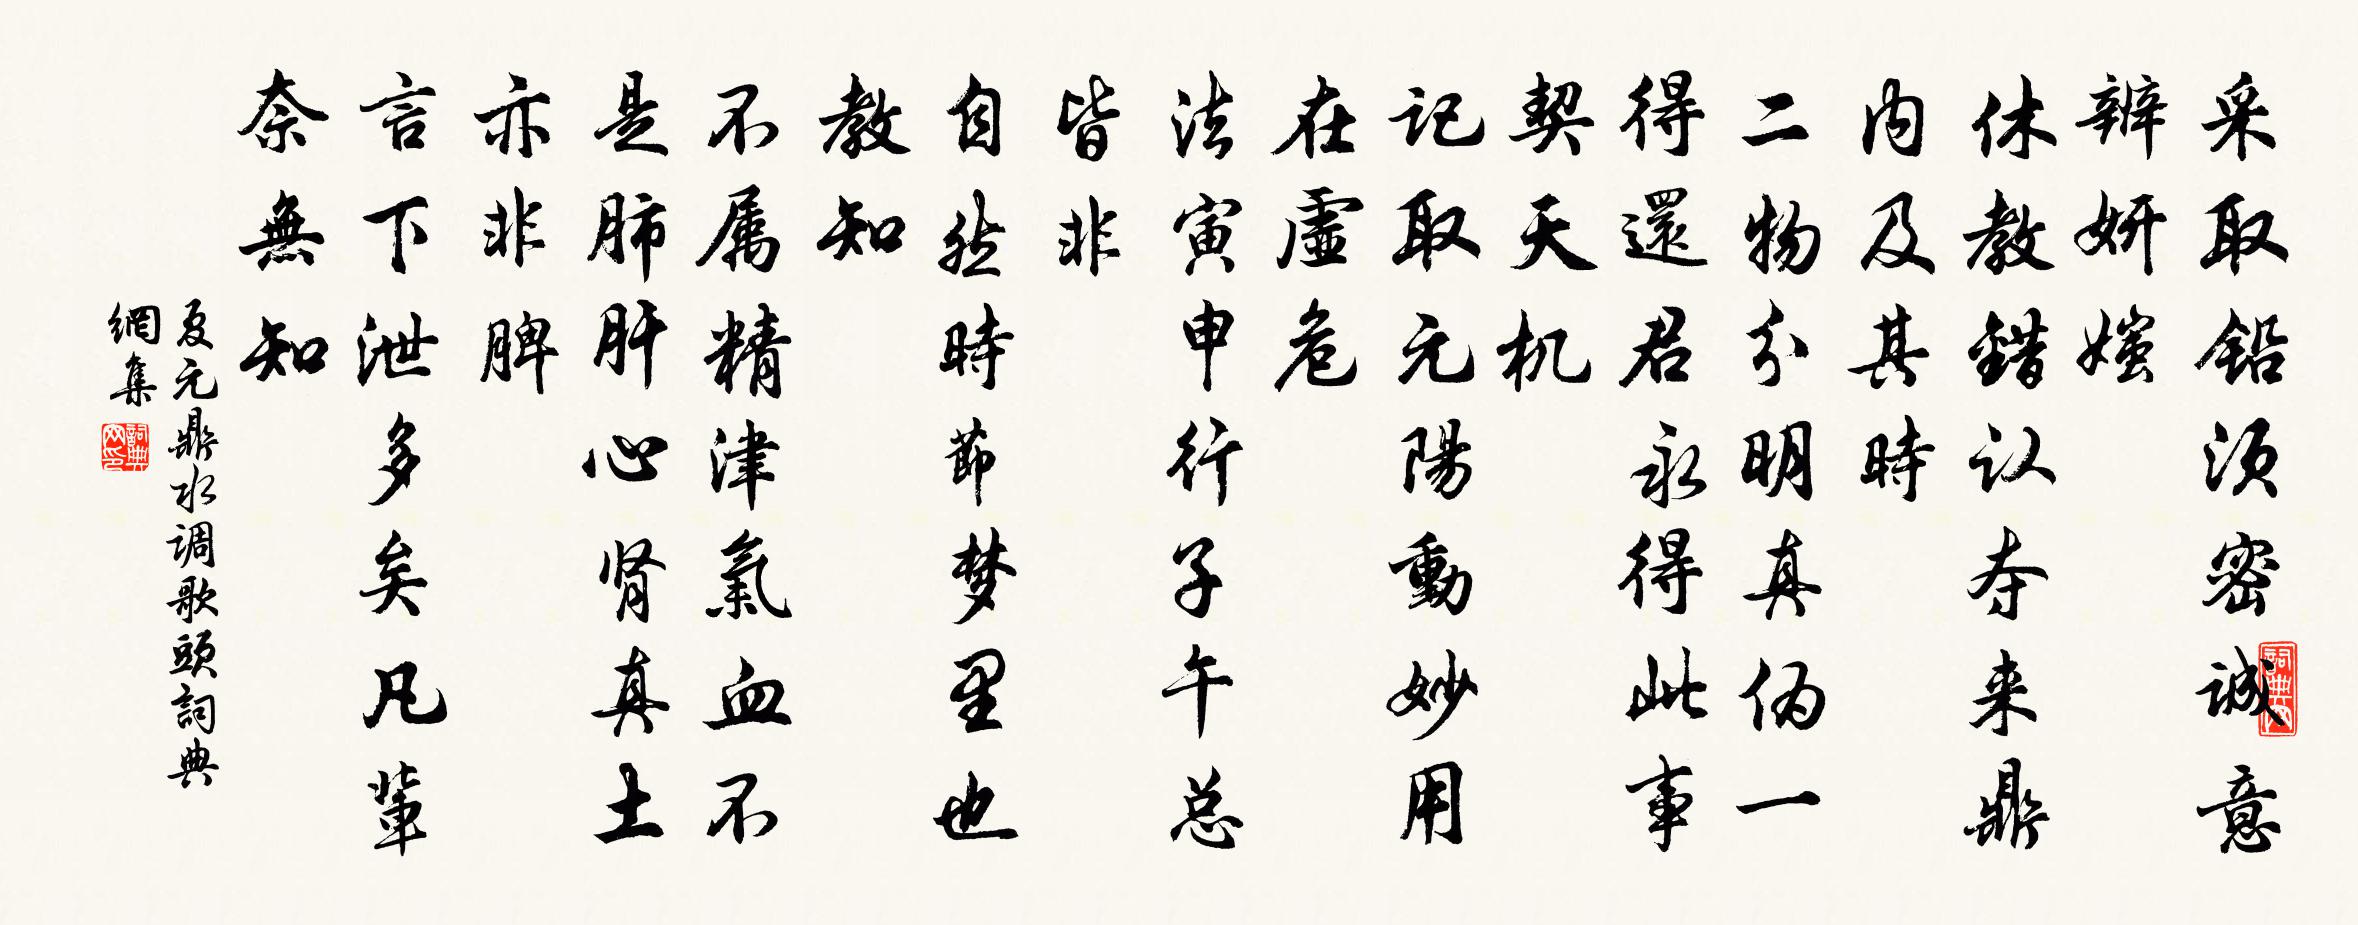 采取铅须密誠意
辨妍媸
休教錯认夺来鼎
内及其時
二物分明真伪一
得還君永得此事
契天机
记取元陽動妙用
在虚危
法寅申行子午总
皆非
自然時節梦里也
教知
不属精津氣血不
是肺肝心肾真土
亦非脾
言下泄多矣凡輩
奈無知
夏元鼎水调歌頭詞典
網集
詞典网
詞典网印